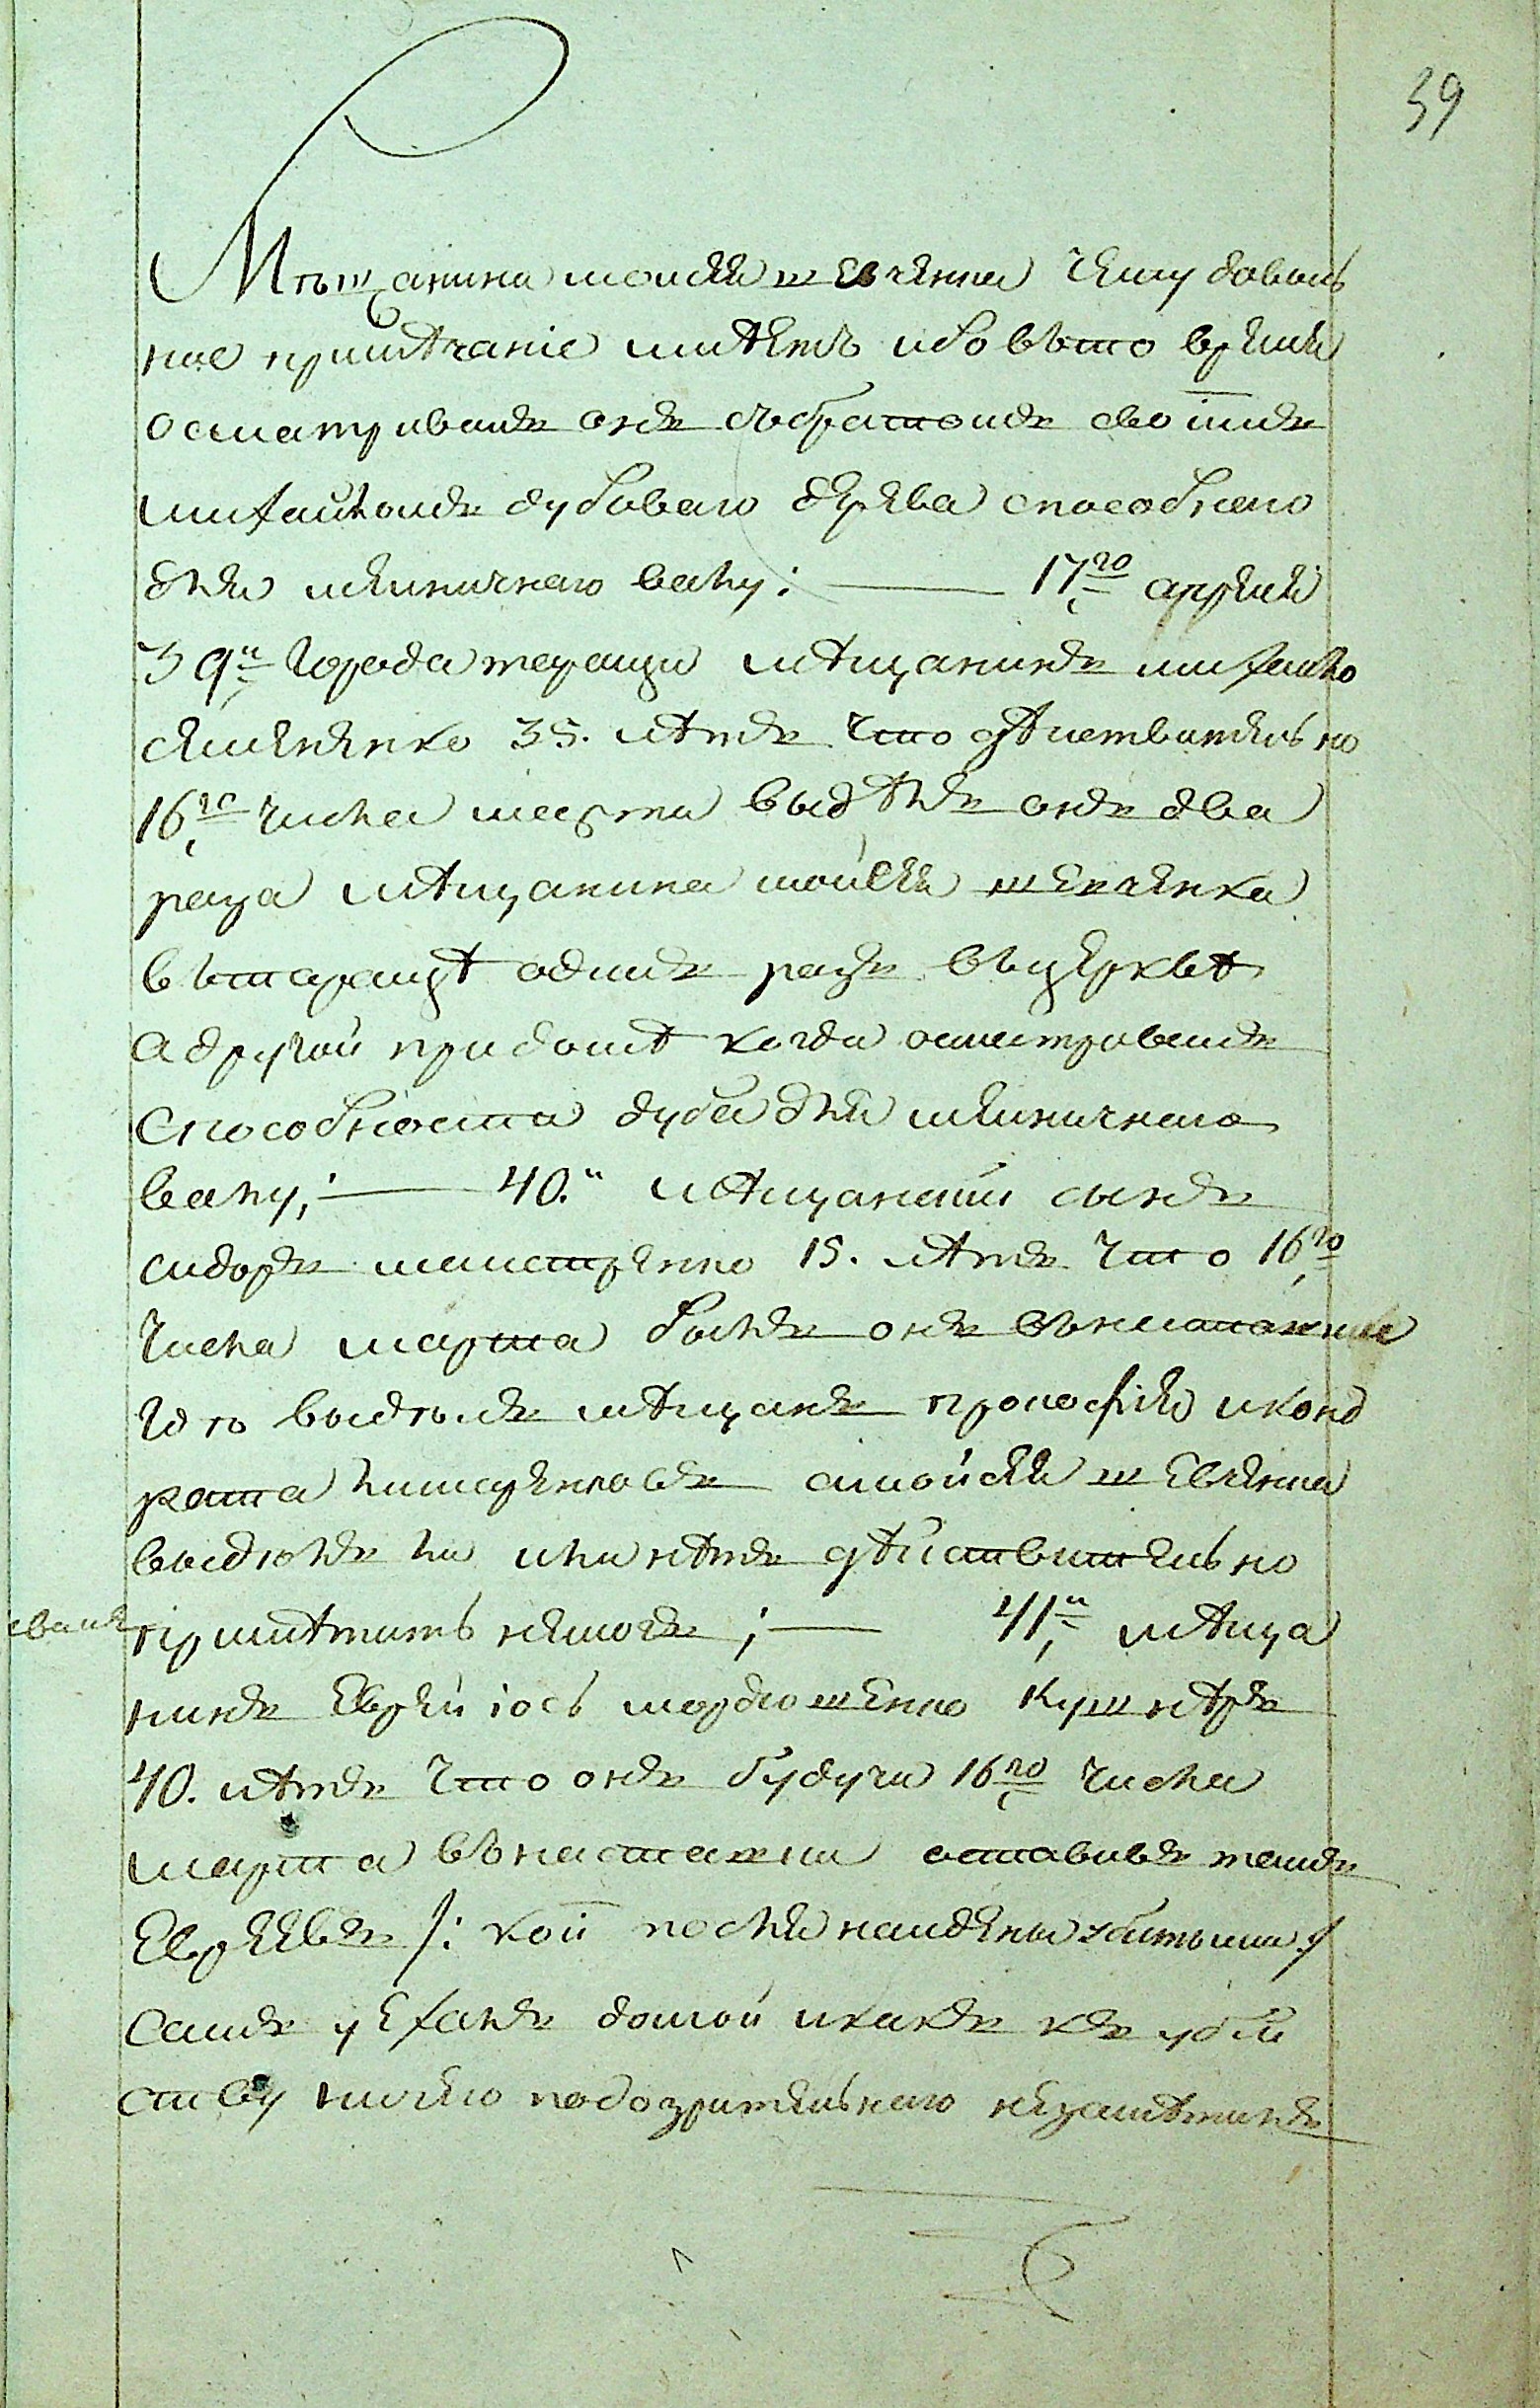 39
Мѣщанина мойсея шевченка чему доволь
ное примѣчаніе имѣетъ ибо въто время
осматривалъ онъ събратомъ своимъ
михайломъ дубоваго дерева способнаго
для мельничнаго валу: — 17,го апреля
39й города таращи мѣщанинъ михайло
семененко 35. лѣтъ что дѣйствительно
16,го числа марта выдѣлъ онъ два
раза мѣщанина мойсея шевченка
въ таращѣ одинъ разъ въцерквѣ
а другой при домѣ когда осматривалъ
способность дуба для мельничнаго
валу; — 40.й мѣщанскій сынъ
сидоръ 15. лѣтъ что 16,го
числа марта былъ онъ
где выделъ мѣщанъ прокофія иконд
рата амойсея шевченка
выделъ ли илинѣтъ дѣйствительно
примѣтить неможе; — 41,й мѣща
нинъ Еврей іось мордко кушнѣръ
40. лѣтъ что онъ будучи 16,го числа
марта оставивъ тамъ
Евреевъ /: кои после найдены убитыми :/
самъ уехалъ домой икакъ къ убій
ству ничего подозрительнаго незамѣтилъ